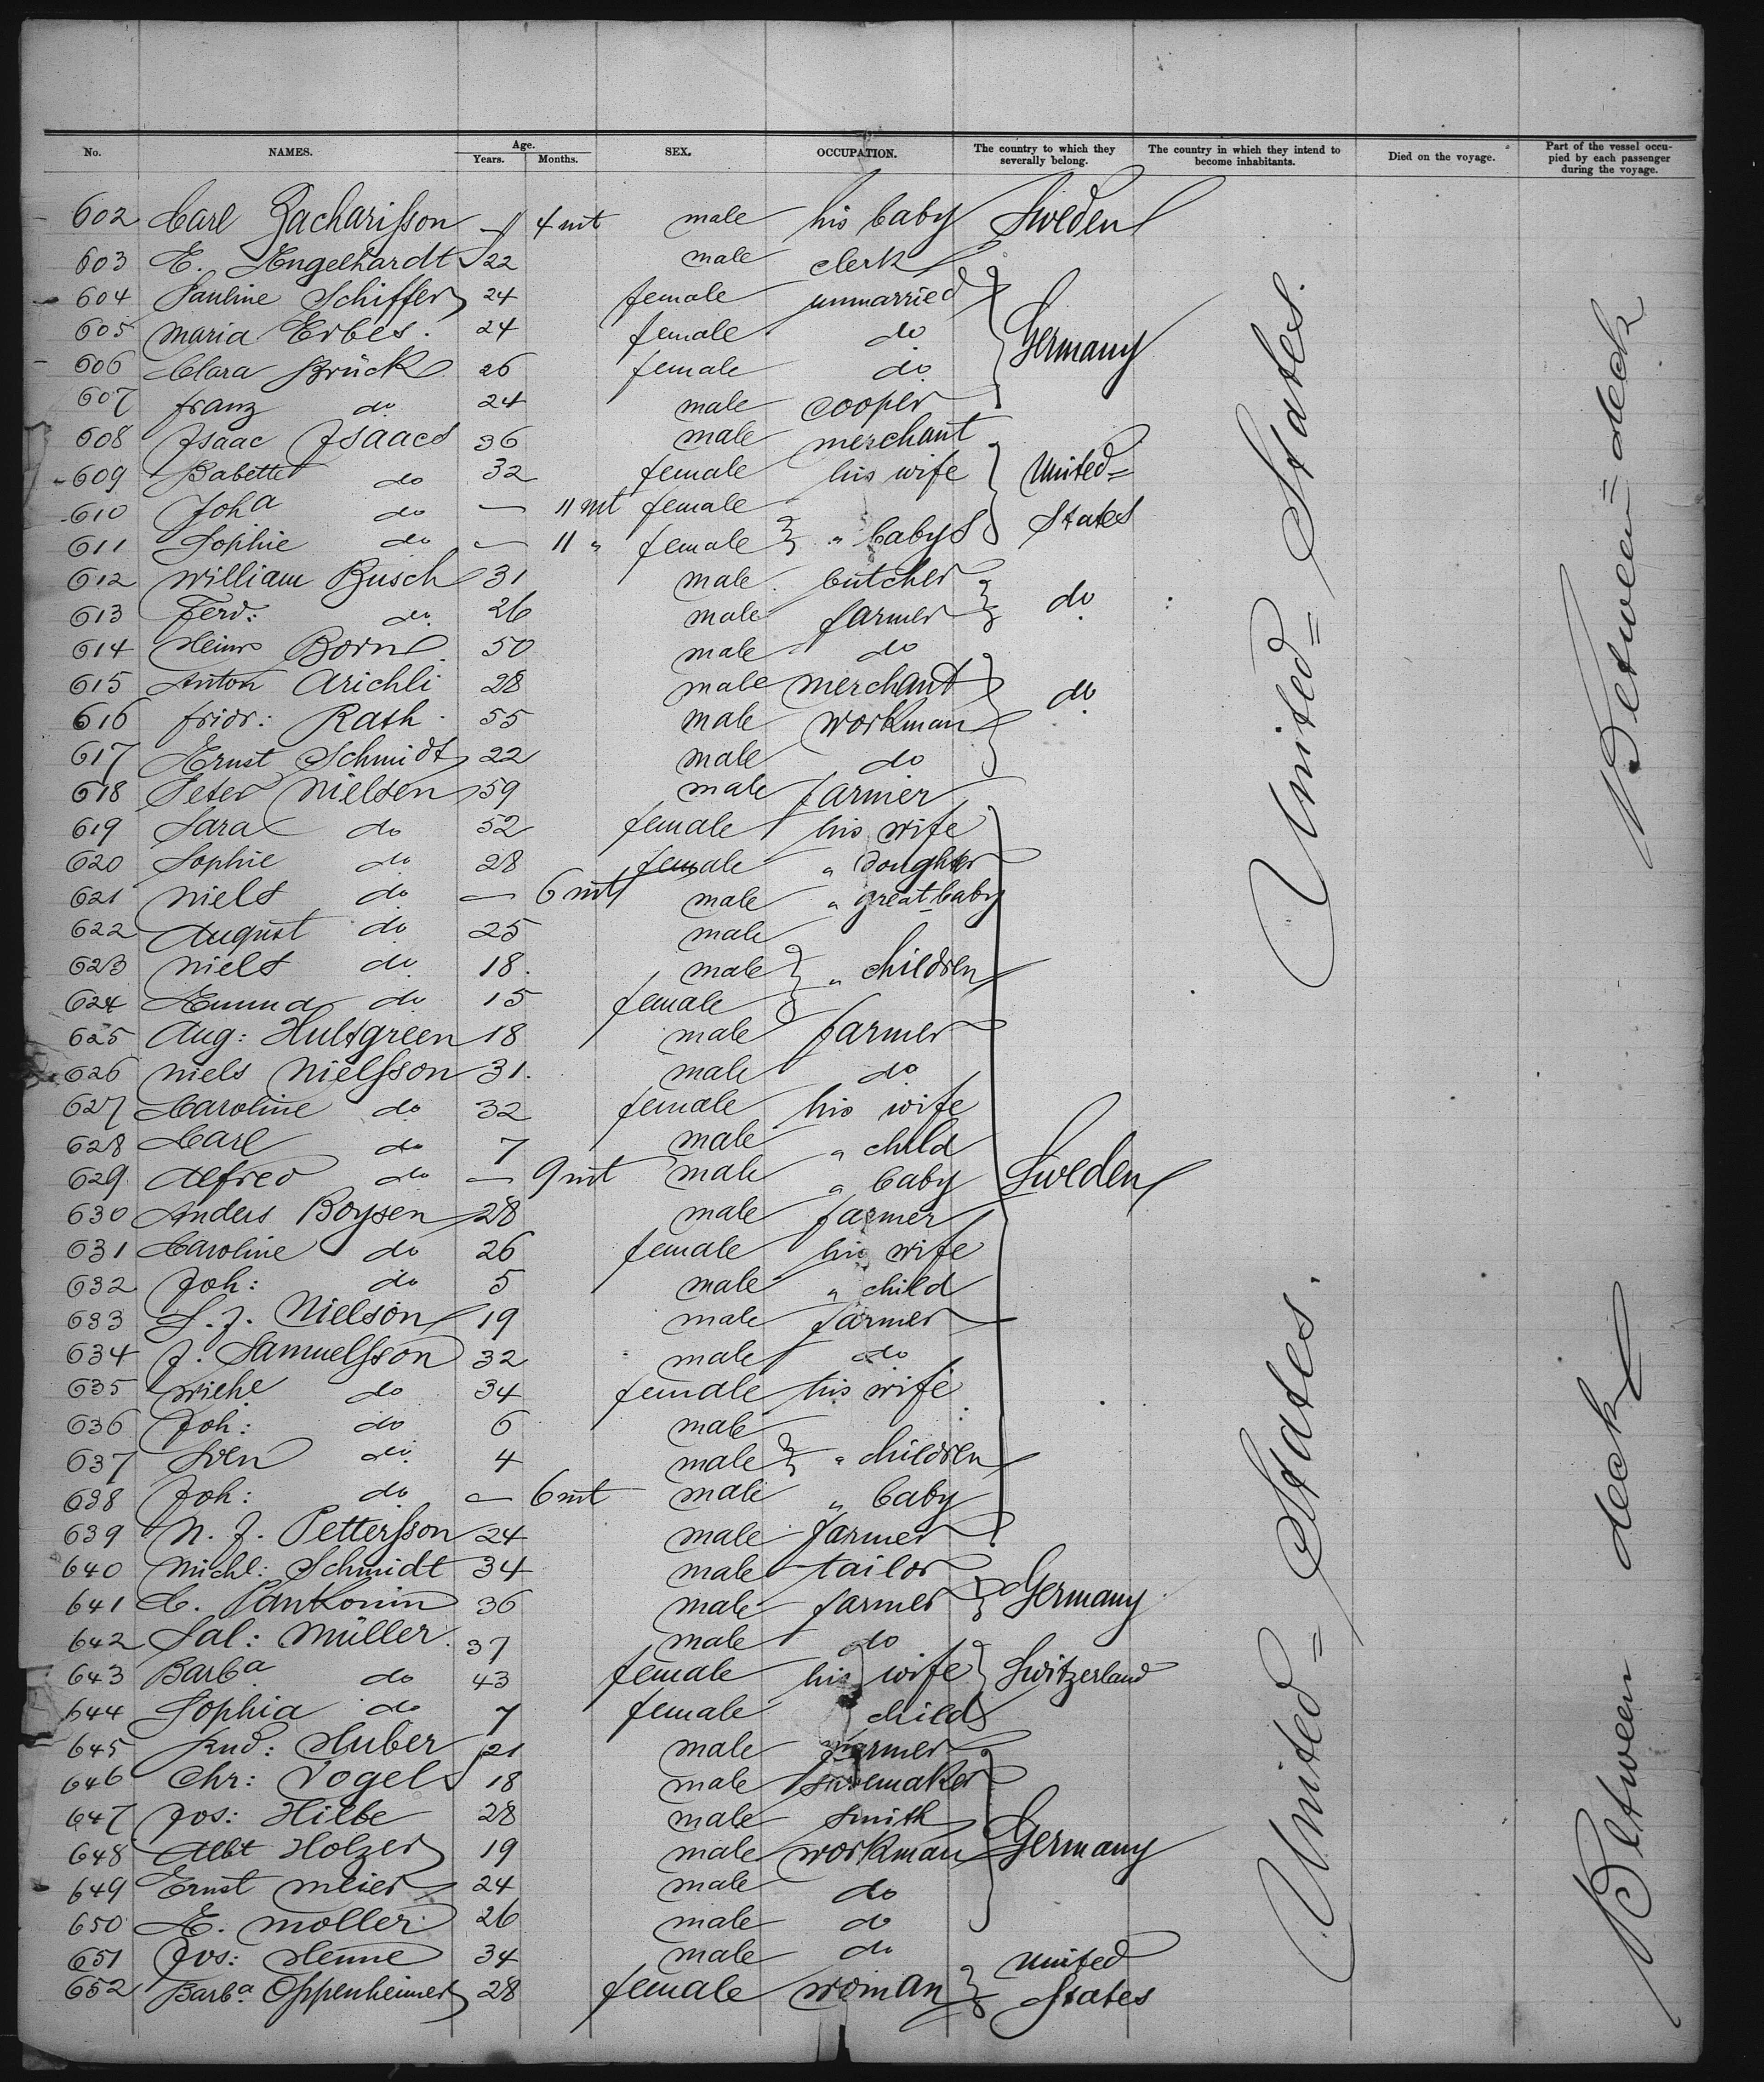 No. NAMES. Age. Years. Months. SEX. OCCUPATION. The country to which they severally belong. The country in which they intend to become inhabitants. Died on the voyage. Part of the vessel occupied by each passenger during the voyage.
602 Carl Zacharisson — 4 mt male his baby Sweden
603 E. Engelhardt 22 male clerk
604 Pauline Schiffer 24 female unmarried
605 Maria Erbes. 24 female do
606 Clara Brück 26 female do Germany
607 Franz do 24 male cooper
608 Isaac Isaacs 36 male merchant
609 Babette do 32 female his wife United=
610 Joha do — 11 mt female
611 Sophie do — 11 " female " babys States
612 William Busch 31 male butcher
613 Ferd: do 26 male farmer do
614 Heinr Born 50 male do
615 Anton Arichli 28 male merchant do
616 Fridr: Rath 55 male workman
617 Ernst Schmidt 22 male do
618 Peter Nielsen 59 male farmer
619 Sara do 52 female his wife
620 Sophie do 28 female " doughter
621 Niels do — 6 mt male " great-baby
622 August do 25 male
623 Niels do 18 male " children
624 Emma do 15 female
625 Aug: Hultgreen 18 male farmer
626 Niels Nielsson 31. male do
627 Caroline do 32 female his wife
628 Carl do 7 male " child
629 Alfred do — 9 mt male " baby Sweden
630 Anders Boysen 28 male farmer
631 Caroline do 26 female his wife
632 Joh: do 5 male " child
633 S. J. Nielson 19 male farmer
634 J. Samuelsson 32 male do
635 do 34 female his wife
636 Joh: do 6 male
637 Sven do 4 male " children
638 Joh: do — 6 mt male " baby
639 N. J. Pettersson 24 male farmer
640 Michl: Schmidt 34 male tailor
641 C. Pankonin 36 male farmer Germany
642 Sal: Müller 37 male do
643 Barba do 43 female his wife Switzerland
644 Sophia do 7 female child
645 Rud: Huber 21 male farmer
646 Chr: Vogel 18 male shoemaker
647 Jos: Hilbe 28 male smith
648 Albt Holzer 19 male workman Germany
649 Ernst Meier 24 male do
650 E. Moller 26 male do
651 Jos: Henne 34 male do United
652 Barba Oppenheimer 28 female woman States
United= States.
United= States.
Between= deck
Between deck